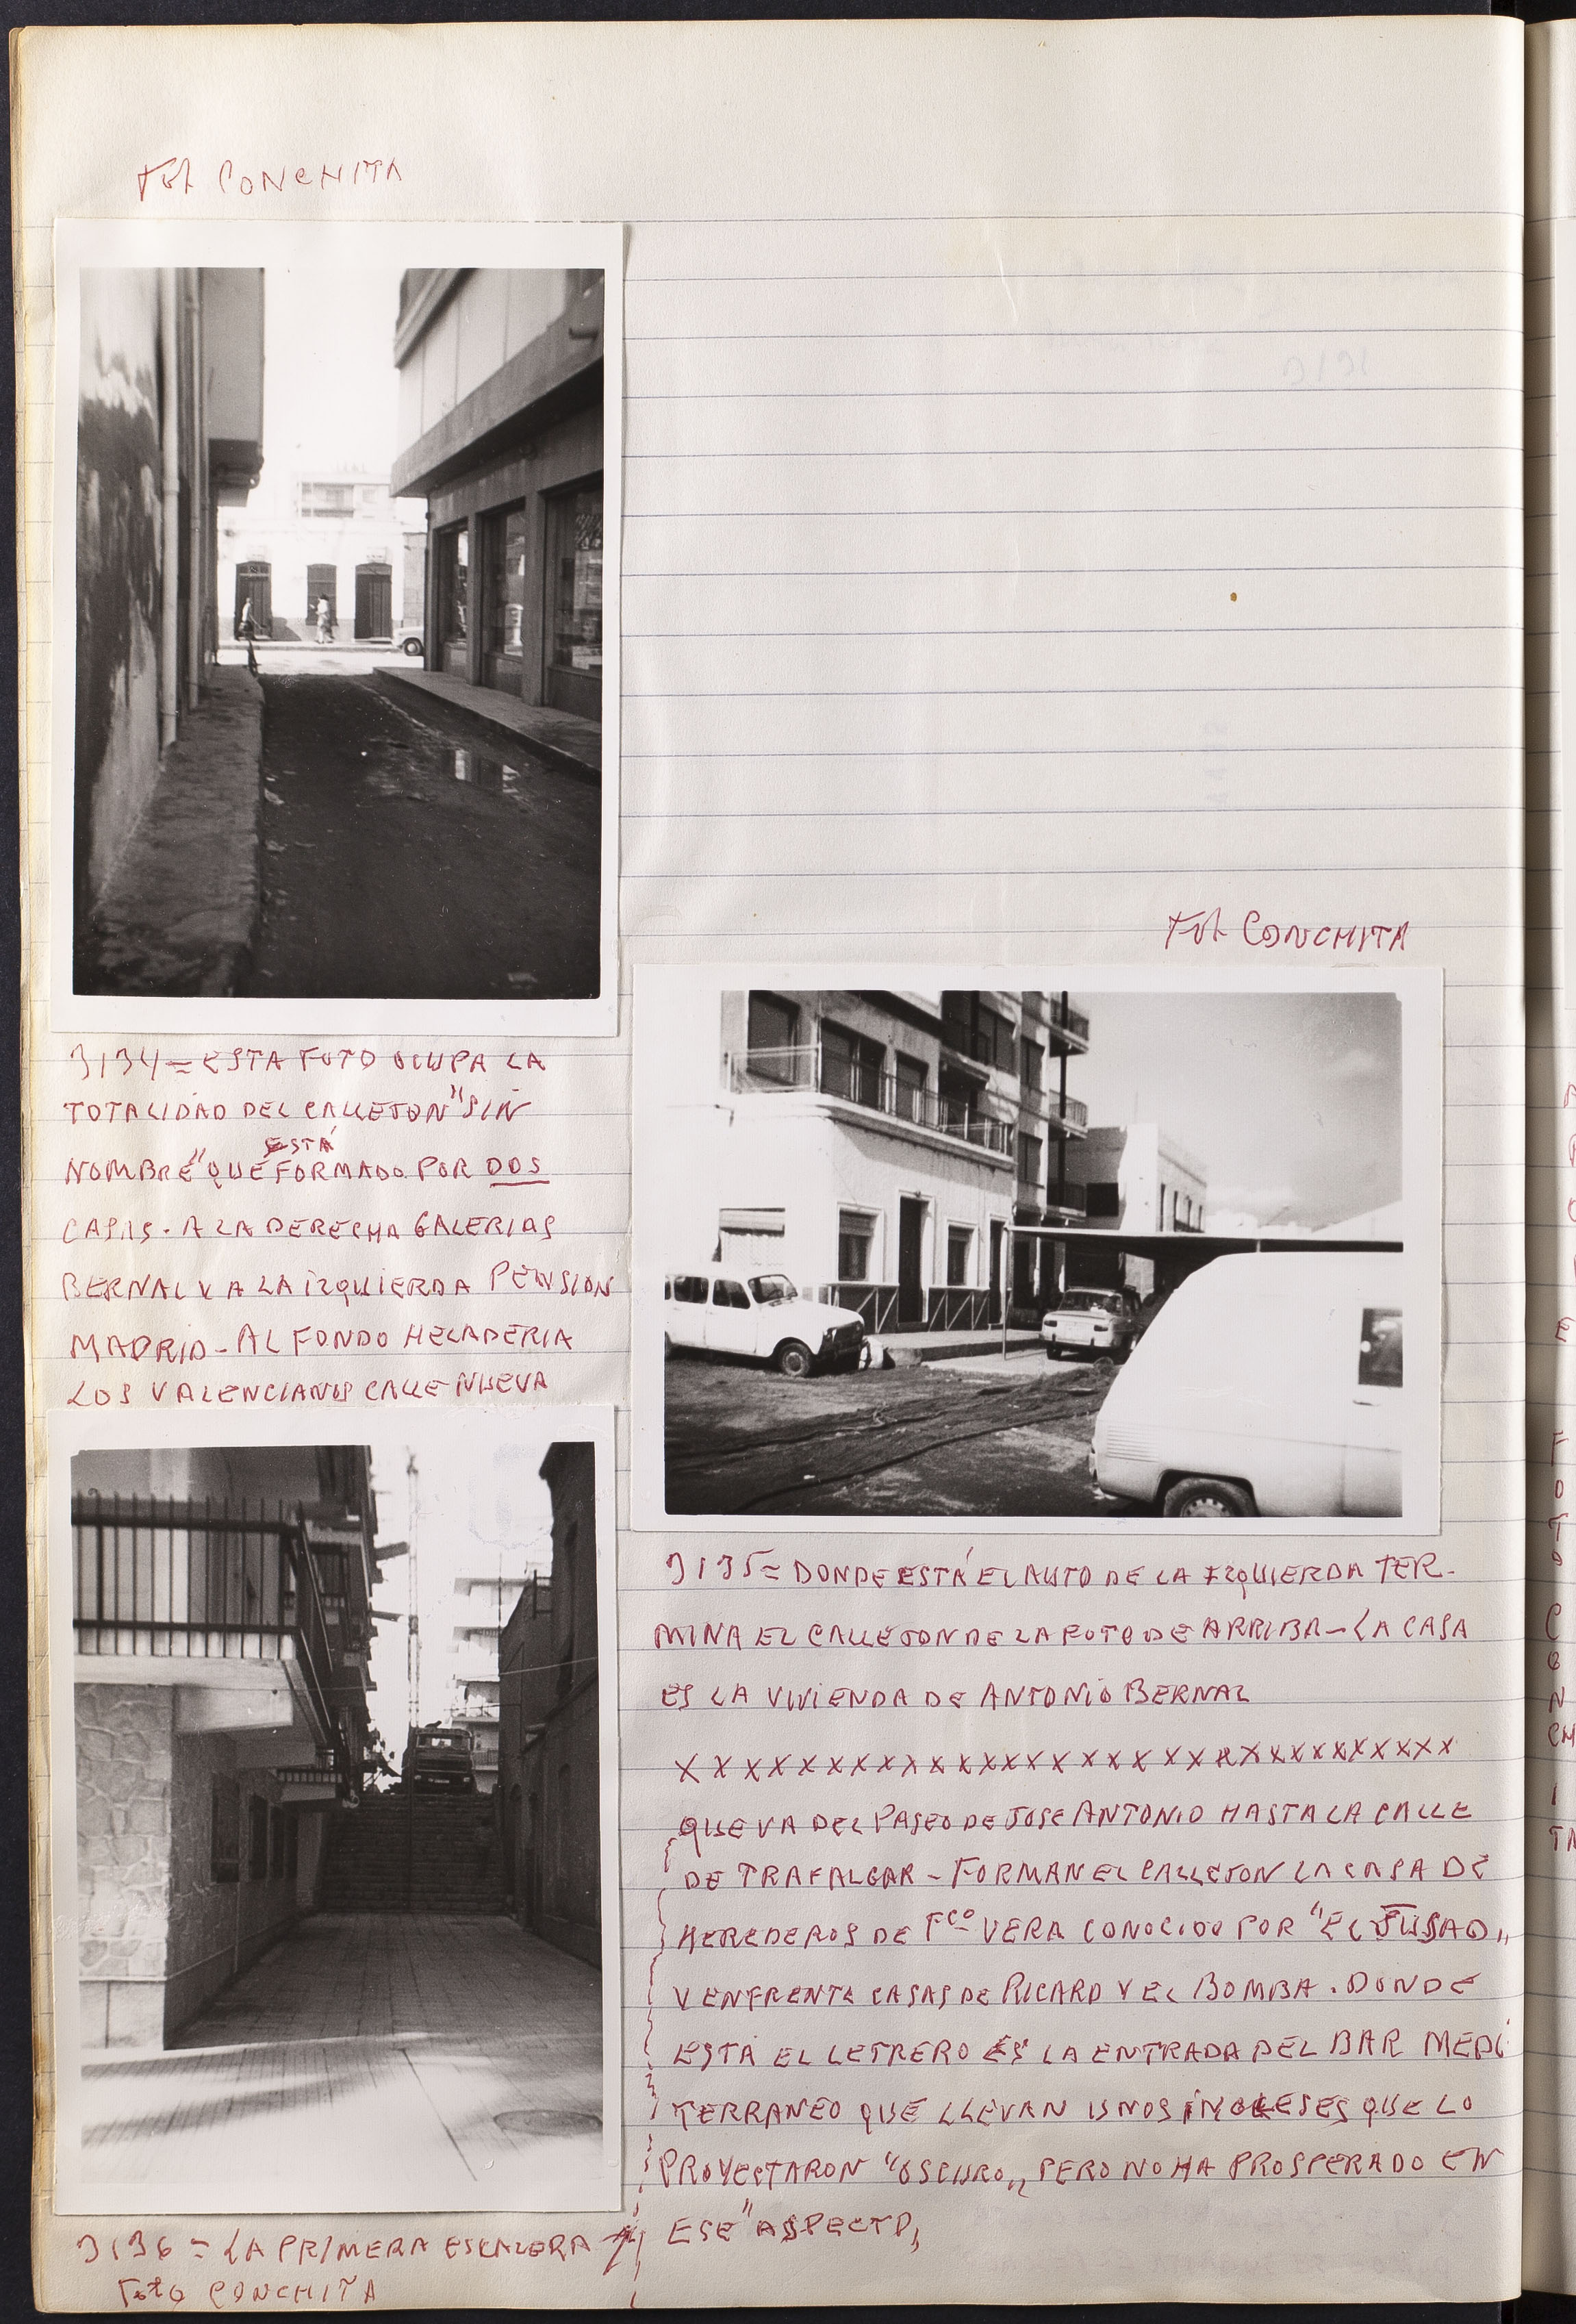 Fot CONCHITA
3134 = ESTA FOTO OCUPA LA
TOTALIDAD DEL CALLEJON "SIN
ESTÁ
NOMBRE" QUE FORMADO POR DOS
CASAS. A LA DERECHA GALERIAS
BERNAL Y A LA IZQUIERDA PENSION
MADRID - AL FONDO HELADERIA
LOS VALENCIANOS CALLE NUEVA
Fot CONCHITA
3135 = DONDE ESTÁ EL AUTO DE LA IZQUIERDA TER-
MINA EL CALLEJON DE LA FOTO DE ARRIBA - LA CASA
ES LA VIVIENDA DE ANTONIO BERNAL
X X X X X X X X X X X X X X X X X X X X X X X X X X X X X X
3136 = LA PRIMERA ESCALERA
Foto CONCHITA
QUE VA DEL PASEO DE JOSE ANTONIO HASTA LA CALLE
DE TRAFALGAR - FORMAN EL CALLEJON LA CASA DE
HEREDEROS DE Fco VERA CONOCIDO POR "EL
Y ENFRENTE CASAS DE RICARD Y EL BOMBA. DONDE
ESTÁ EL LETRERO ES LA ENTRADA DEL BAR MEDI
TERRANEO QUE LLEVAN UNOS INGLESES QUE LO
PROYECTARON "OSCURO", PERO NO HA PROSPERADO EN
ESE "ASPECTO,